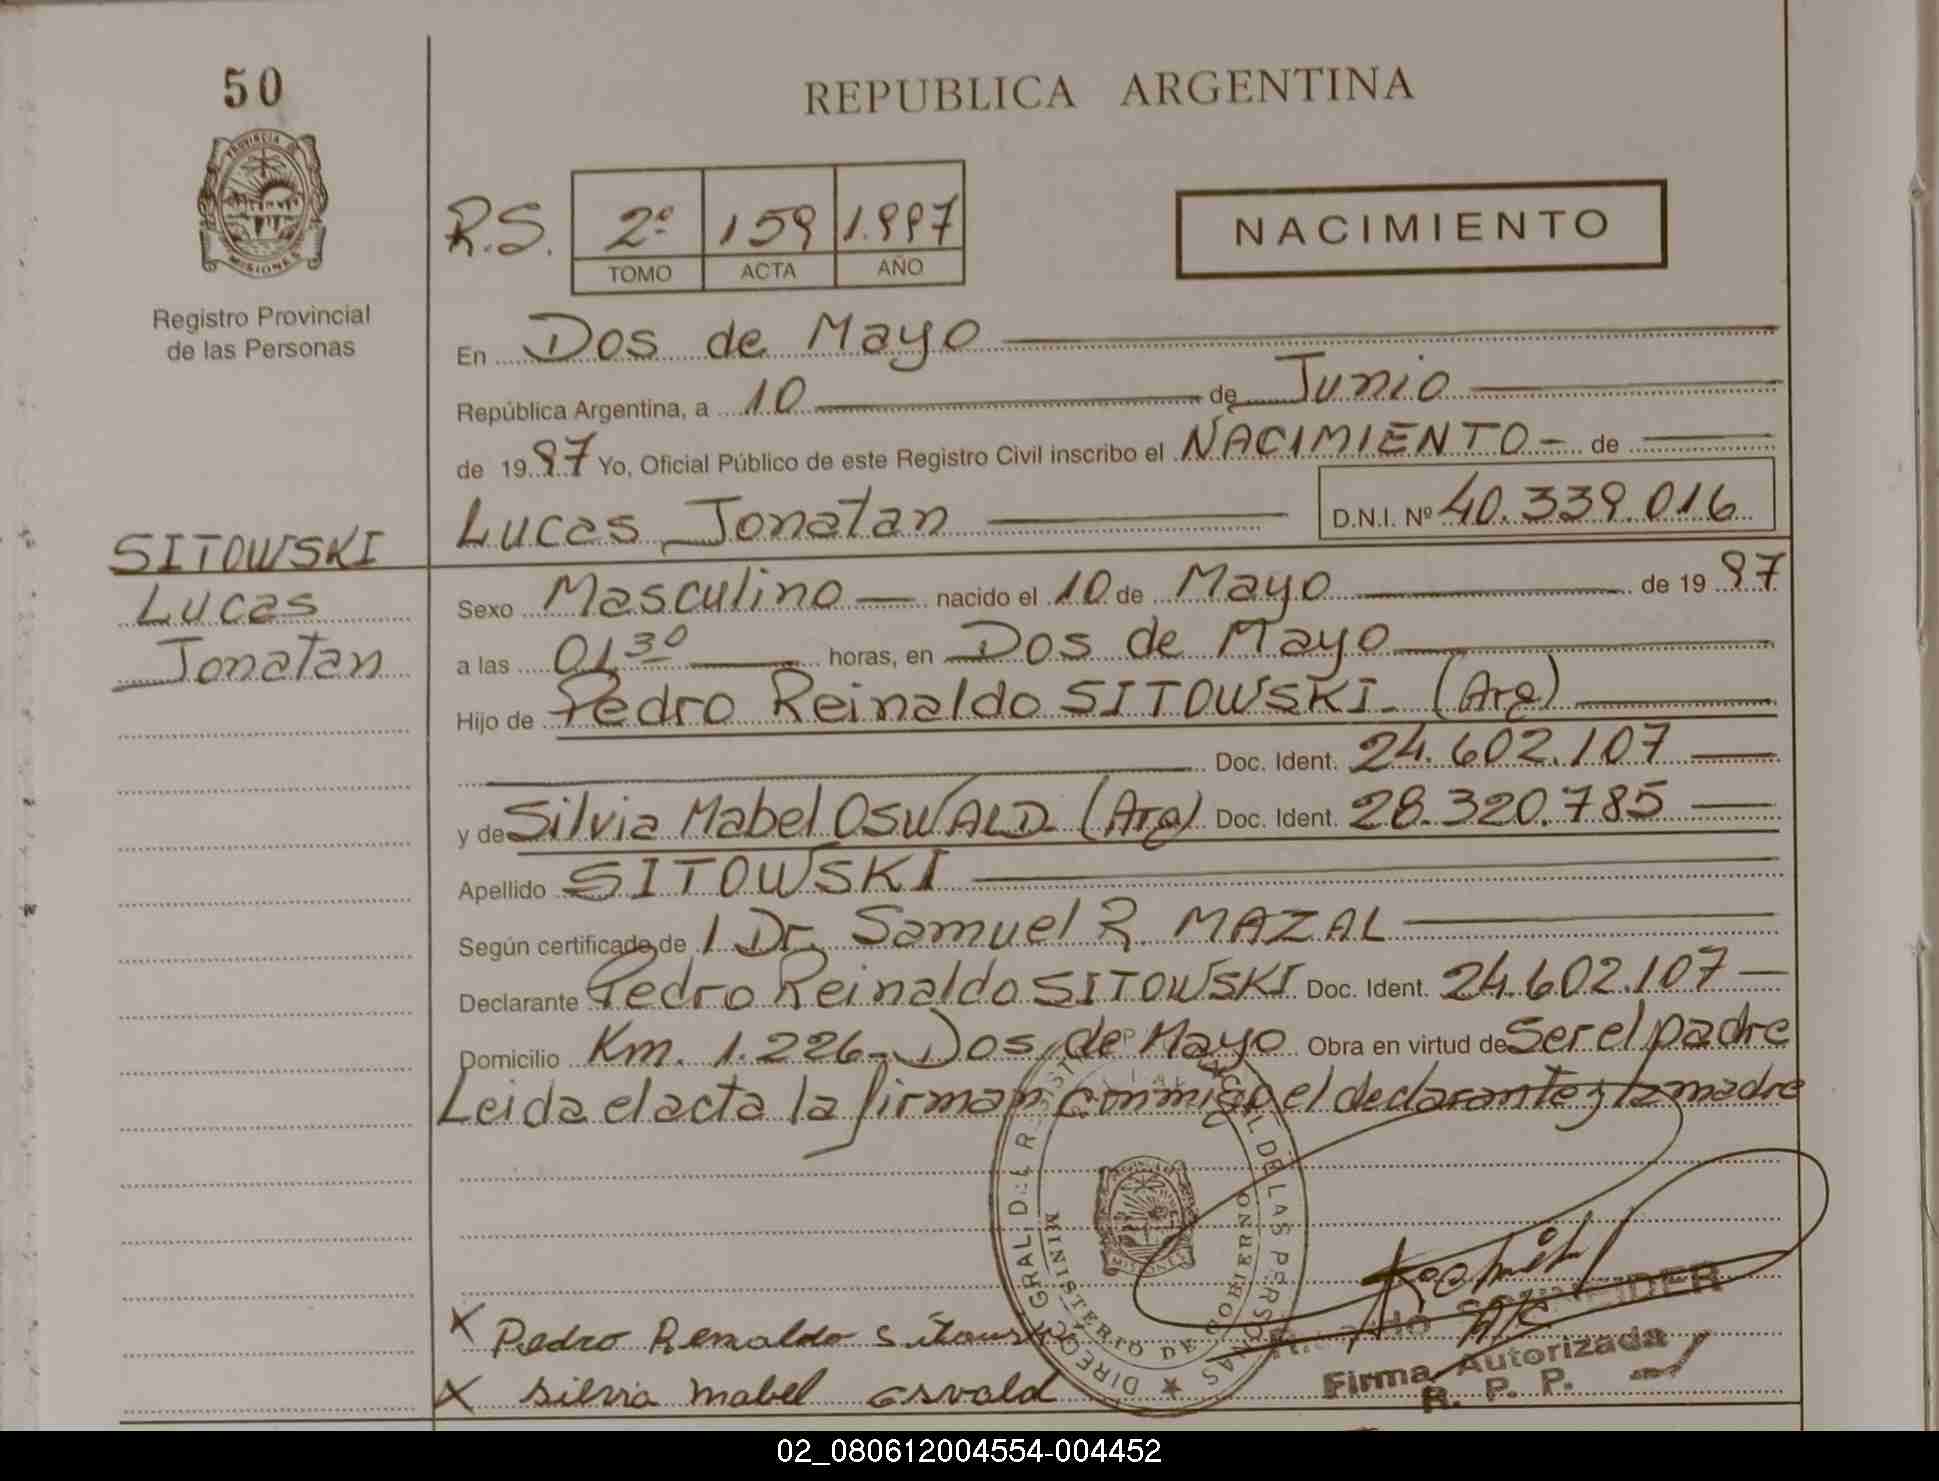 50
REPUBLICA ARGENTINA
PROVINCIA DE
MISIONES
Registro Provincial
de las Personas
R.S. 2º 159 1.997
TOMO ACTA AÑO
NACIMIENTO
En Dos de Mayo
República Argentina, a 10 de Junio
de 1997 Yo, Oficial Público de este Registro Civil inscribo el NACIMIENTO - de
Lucas Jonatan D.N.I. Nº 40.339.016
SITOWSKI
Lucas
Jonatan
Sexo Masculino nacido el 10 de Mayo de 1997
a las 01 30 horas, en Dos de Mayo
Hijo de Pedro Reinaldo SITOWSKI. (Arg)
Doc. Ident. 24.602.107
y de Silvia Mabel OSWALD (Arg) Doc. Ident. 28.320.785
Apellido SITOWSKI
Según certificado de 1 Dr. Samuel R. MAZAL
Declarante Pedro Reinaldo SITOWSKI Doc. Ident. 24.602.107
Domicilio Km. 1.226- Dos de Mayo Obra en virtud de Ser el padre
Leida el acta la firman conmigo el declarante y la madre
DIRECC. GRAL. DEL DE LAS PERSONAS
MINISTERIO DE GOBIERNO
MISIONES
X Pedro Renaldo Sitowski
X silvia mabel osvald
SCHNEIDER
Firma Autorizada
R. P. P.
02_080612004554-004452